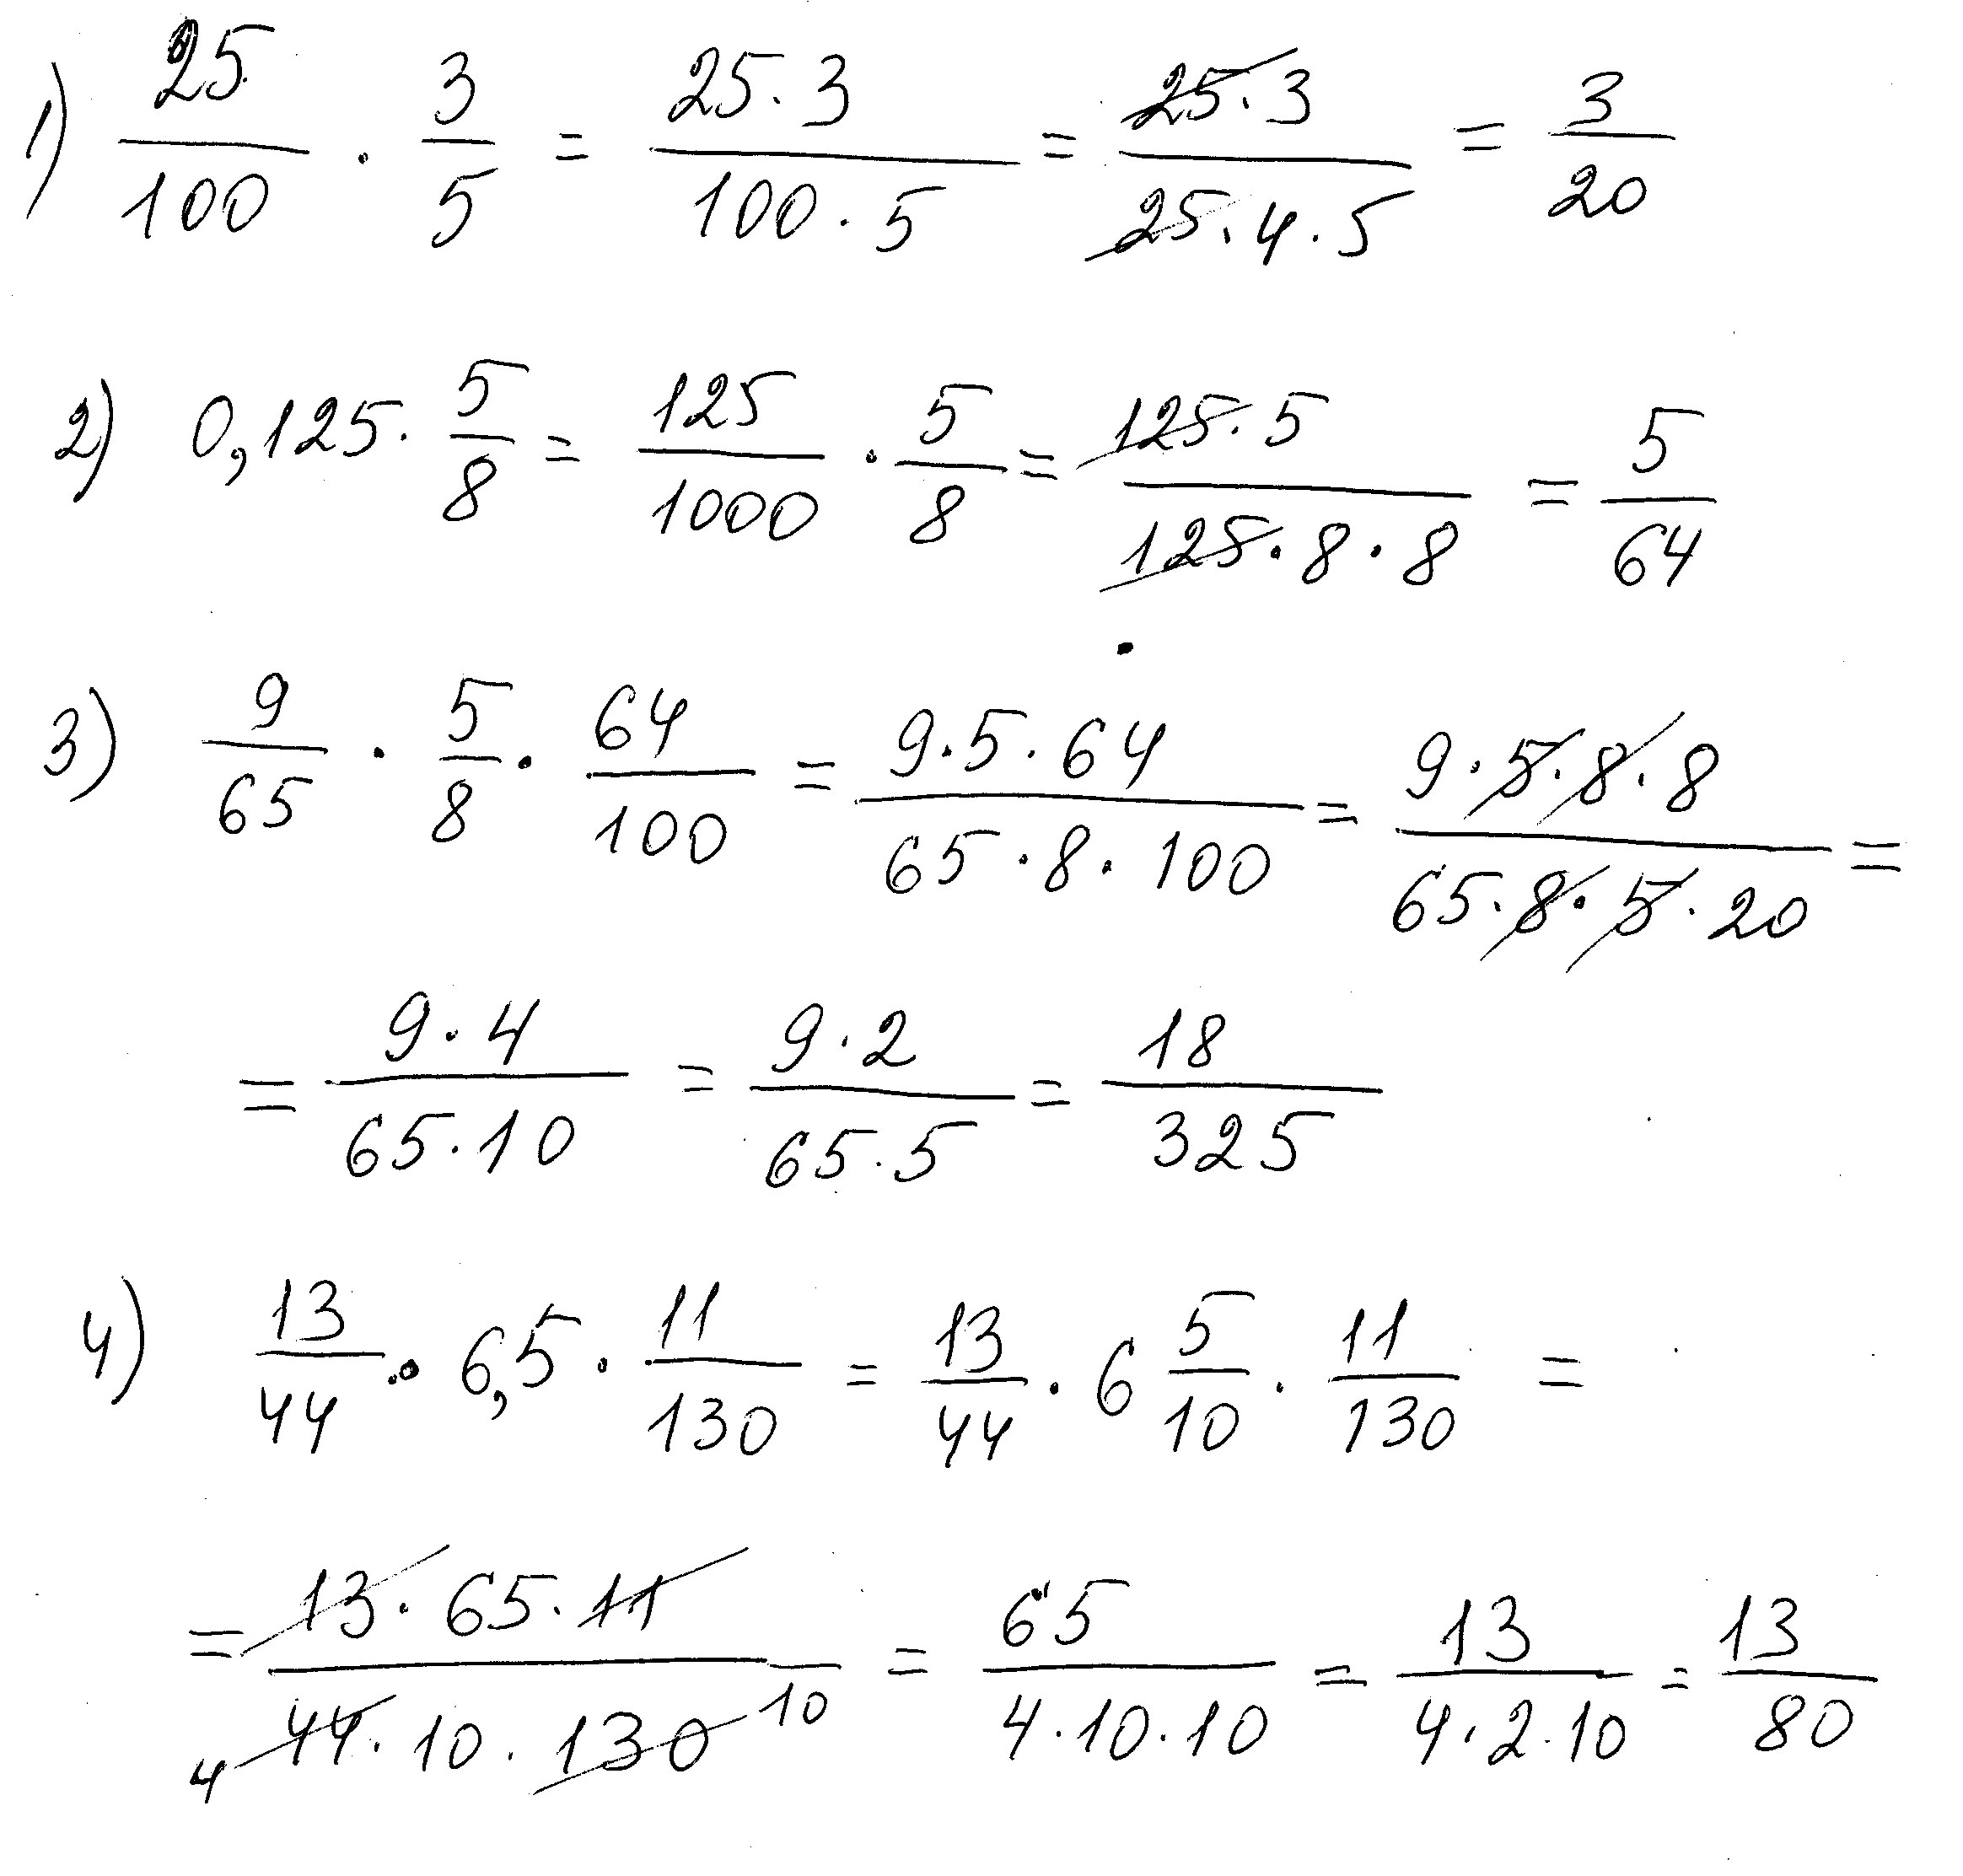 1) 25/100 · 3/5 = 25·3/100·5 = 25·3/25·4·5 = 3/20
2) 0,125 · 5/8 = 125/1000 · 5/8 = 125·5/125·8·8 = 5/64
3) 9/65 · 5/8 · 64/100 = 9·5·64/65·8·100 = 9·5·8·8/65·8·5·20 =
= 9·4/65·10 = 9·2/65·5 = 18/325
4) 13/44 · 6,5 · 11/130 = 13/44 · 6 5/10 · 11/130 =
= 13·65·11/44·10·130 4 10 = 65/4·10·10 = 13/4·2·10 = 13/80